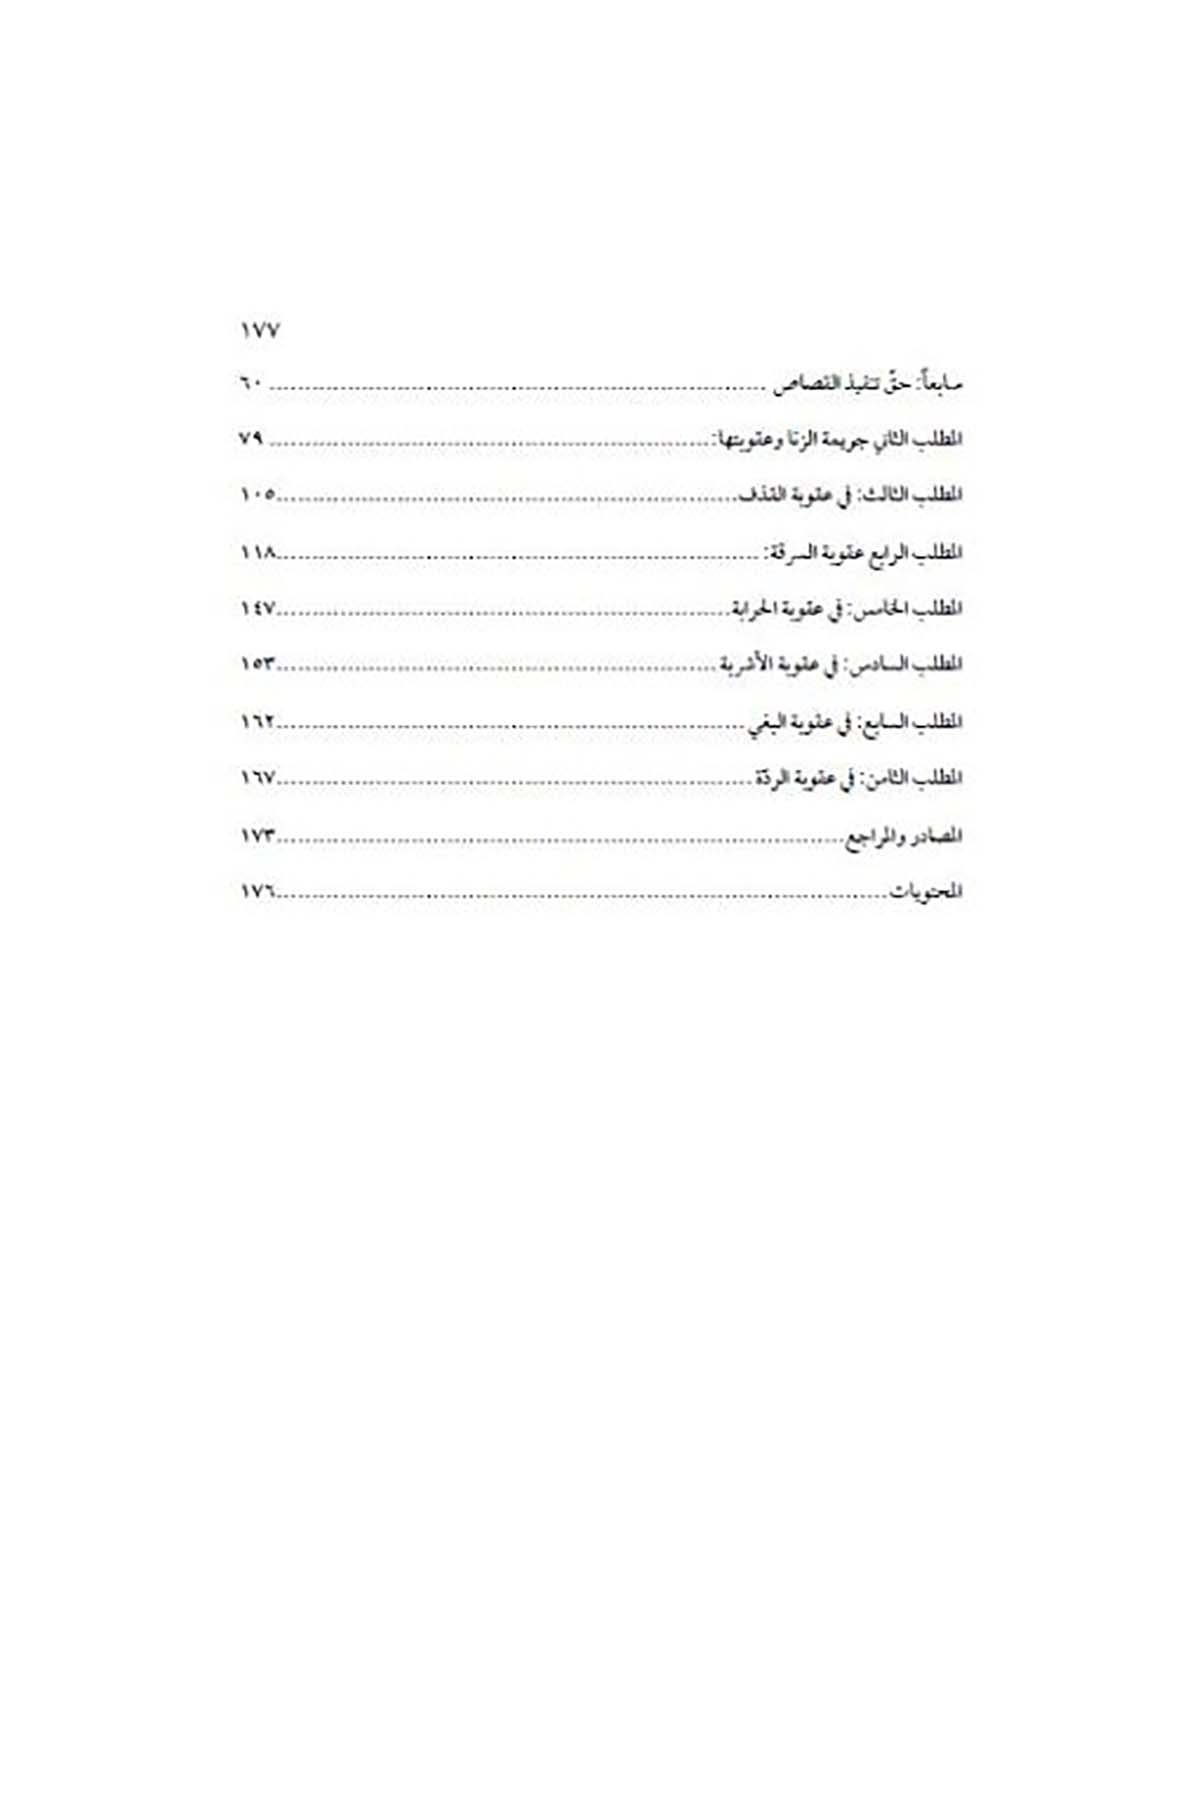 ١٧٧
سابعاً: حقّ تنفيذ القصاص ........................................................................ ٦٠
المطلب الثاني جريمة الزنا وعقوبتها:................................................................ ٧٩
المطلب الثالث: في عقوبة القذف...................................................................١٠٥
المطلب الرابع عقوبة السرقة: ......................................................................١١٨
المطلب الخامس: في عقوبة الحرابة..................................................................١٤٧
المطلب السادس: في عقوبة الأشربة................................................................١٥٣
المطلب السابع: في عقوبة البغي....................................................................١٦٢
المطلب الثامن: في عقوبة الردّة.....................................................................١٦٧
المصادر والمراجع..................................................................................١٧٣
المحتويات........................................................................................١٧٦